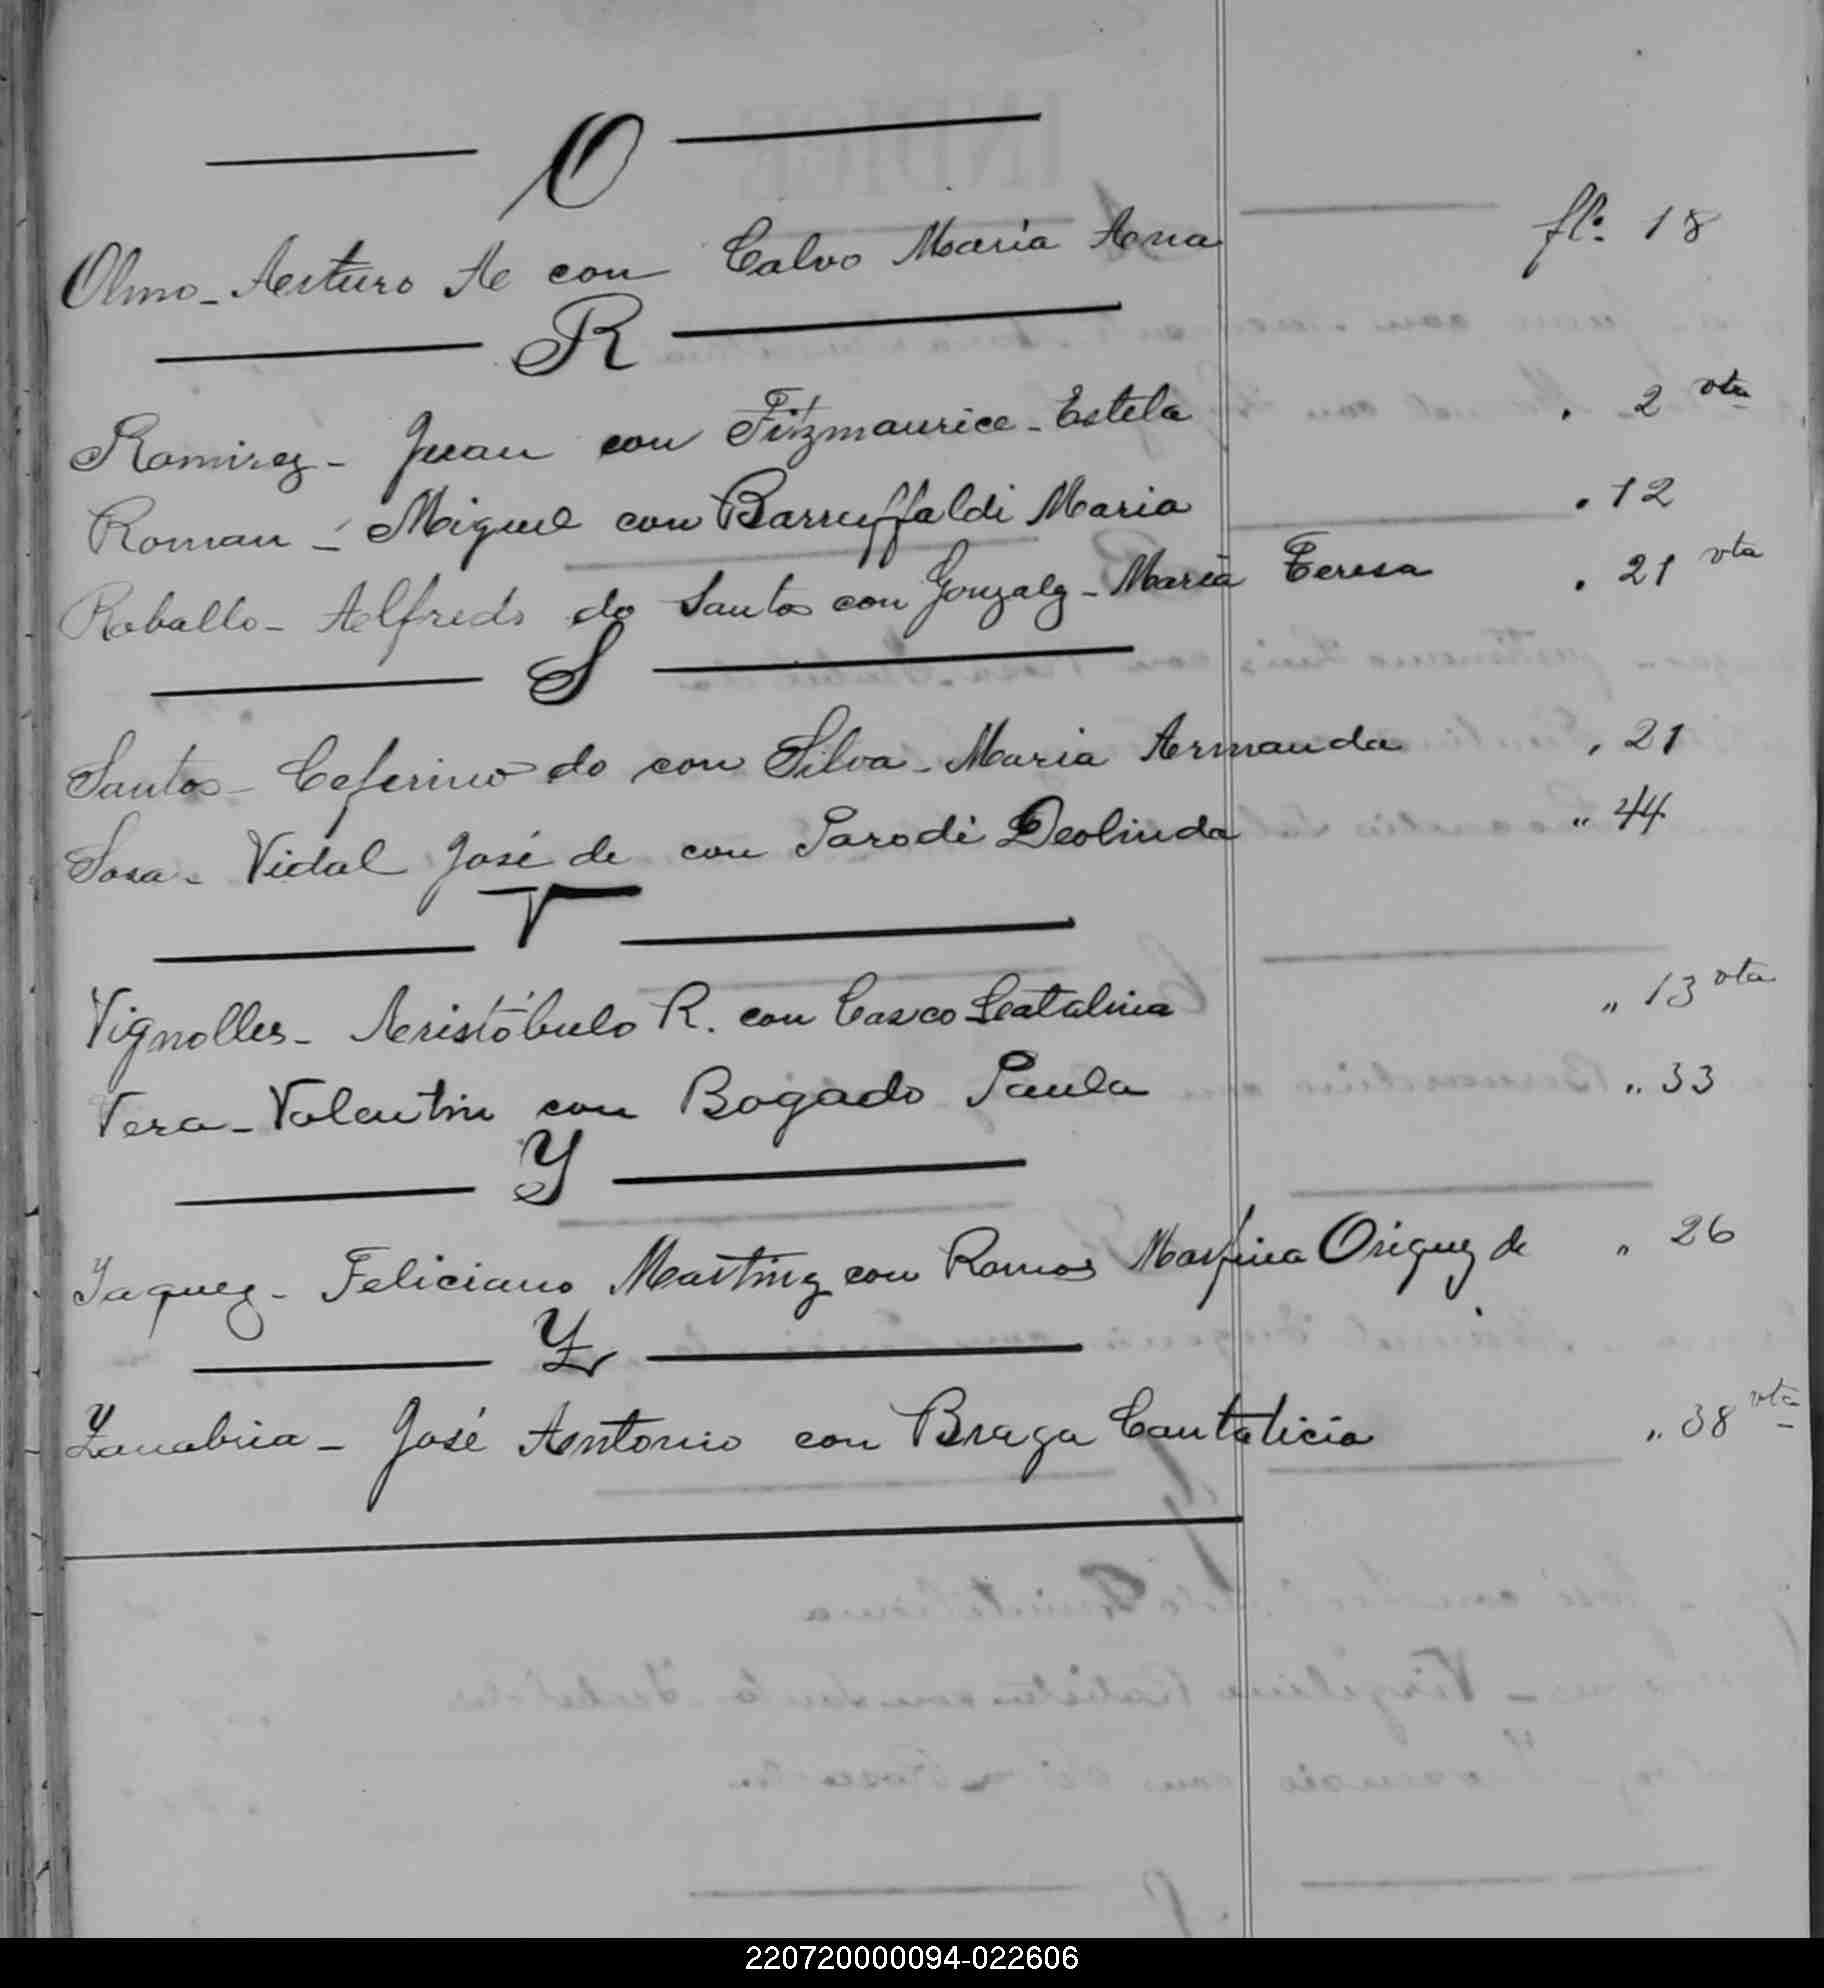 O
Olmo - Arturo A con Calvo María Ana flo. 18
R
Ramirez - Juan con Fitzmaurice - Estela . 2 vta
Roman - Miguel con Barruffaldi Maria . 12
Raballo - Alfredo do Santos con Gonzalz - María Teresa . 21 vta
S
Santos - Ceferino do con Silva - Maria Armanda . 21
Sosa - Vidal José de con Parodi Deolinda " 44
V
Vignolles - Aristóbulo R. con Casco Catalina " 13 vta
Vera - Valentin con Bogado Paula " 33
Y
Yaquez - Feliciano Martinz con Ramos Marfina Origuez de " 26
Z
Zanabria - José Antonio con Braga Cantalicia " 38 vta
220720000094-022606